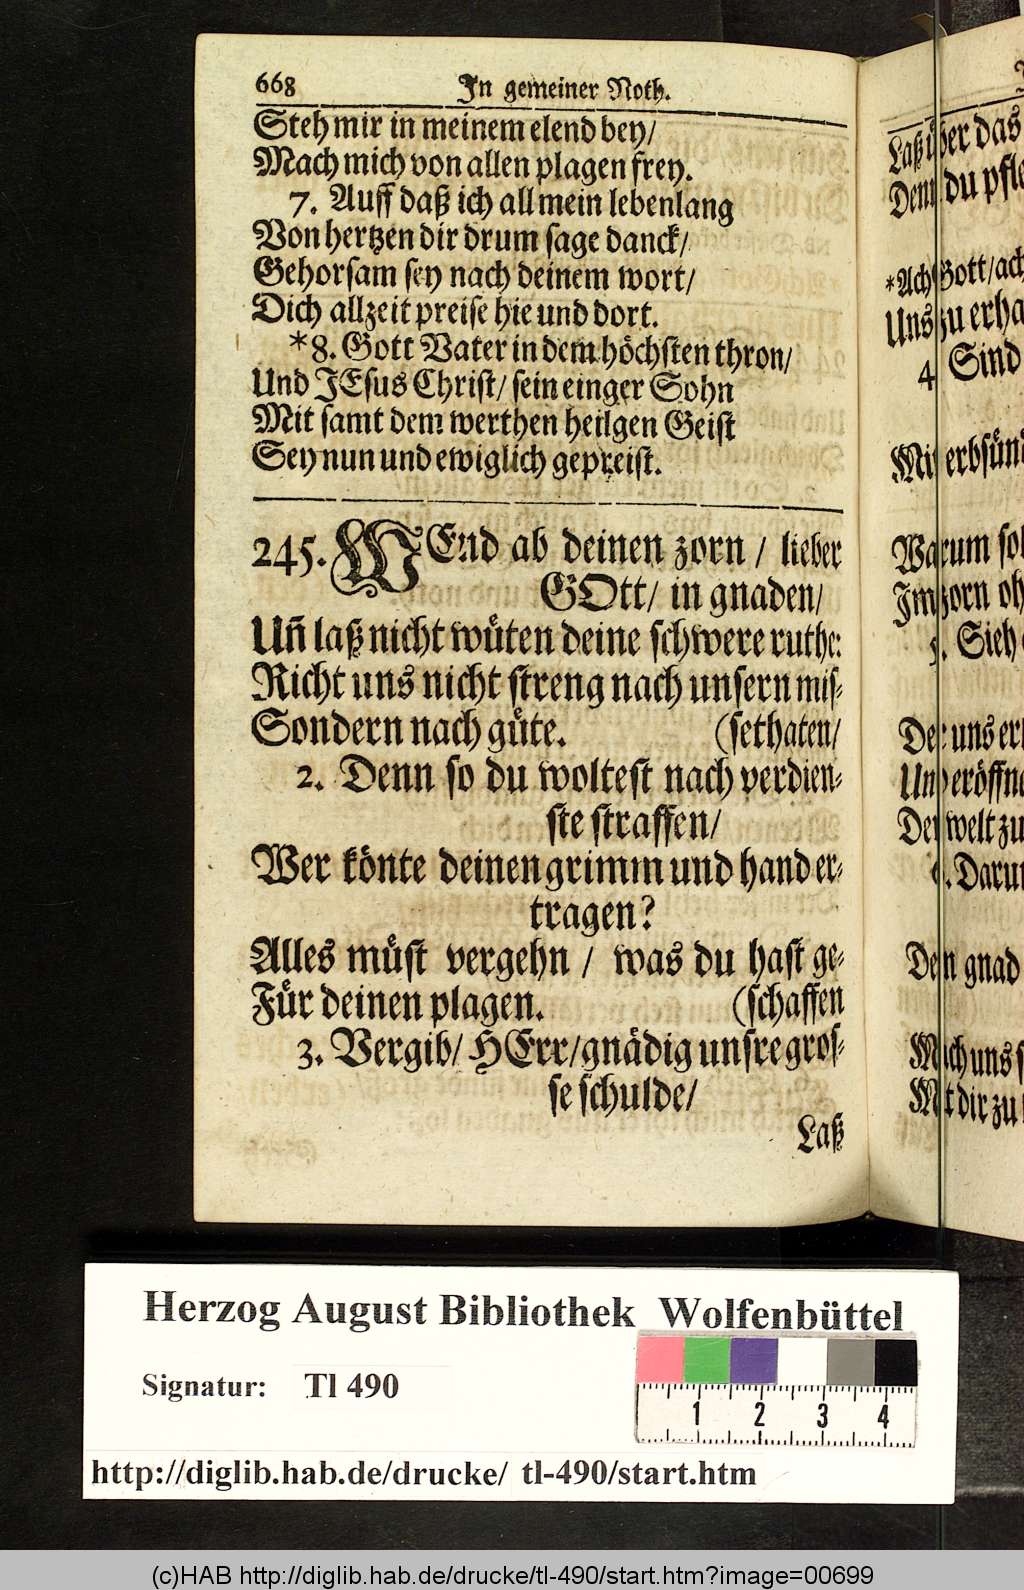 668 In gemeiner Noth.
Steh mir in meinem elend bey/
Mach mich von allen plagen frey.
7. Auff daß ich all mein lebenlang
Von hertzen dir drum sage danck/
Gehorsam sey nach deinem wort/
Dich allzeit preise hie und dort.
*8. Gott Vater in dem höchsten thron/
Und JEsus Christ/ sein einger Sohn
Mit samt dem werthen heilgen Geist
Sey nun und ewiglich gepreist.
245. WEnd ab deinen zorn / lieber
GOtt/ in gnaden/
Uñ laß nicht wüten deine schwere ruthe:
Richt uns nicht streng nach unsern mis-
Sondern nach güte. (sethaten/
2. Denn so du woltest nach verdien-
ste straffen/
Wer könte deinen grimm und hand er-
tragen?
Alles müst vergehn / was du hast ge-
Für deinen plagen. (schaffen
3. Vergib/ HErr/ gnädig unsre gros-
se schulde/
Laß
Laß über das
Denn du pfle
*Ach Gott/ ach
Uns zu erha
4. Sind
Mit erbsünd
Warum sol
Im zorn oh
5. Sieh
Der uns erl
Und eröffne
Der welt zu
6. Darum
Dein gnad
Mach uns s
Mit dir zu
Herzog August Bibliothek Wolfenbüttel
Signatur: Tl 490
1 2 3 4
http://diglib.hab.de/drucke/ tl-490/start.htm
(c)HAB http://diglib.hab.de/drucke/tl-490/start.htm?image=00699